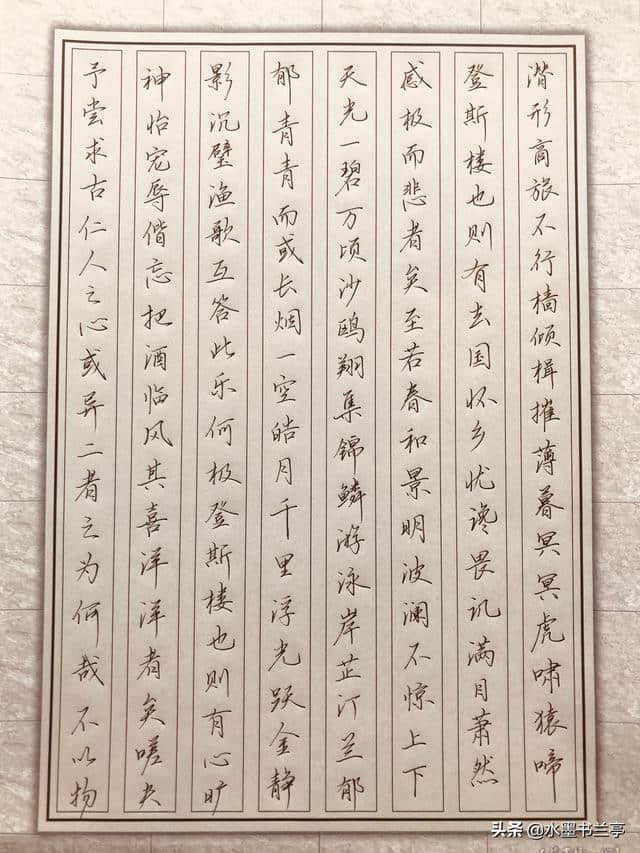 潜形商旅不行樯倾楫摧薄暮冥冥虎啸猿啼
登斯楼也则有去国怀乡忧谗畏讥满目萧然
感极而悲者矣至若春和景明波澜不惊上下
天光一碧万顷沙鸥翔集锦鳞游泳岸芷汀兰郁
郁青青而或长烟一空皓月千里浮光跃金静
影沉璧渔歌互答此乐何极登斯楼也则有心旷
神怡宠辱偕忘把酒临风其喜洋洋者矣嗟夫
予尝求古仁人之心或异二者之为何哉不以物
头条 @水墨书兰亭